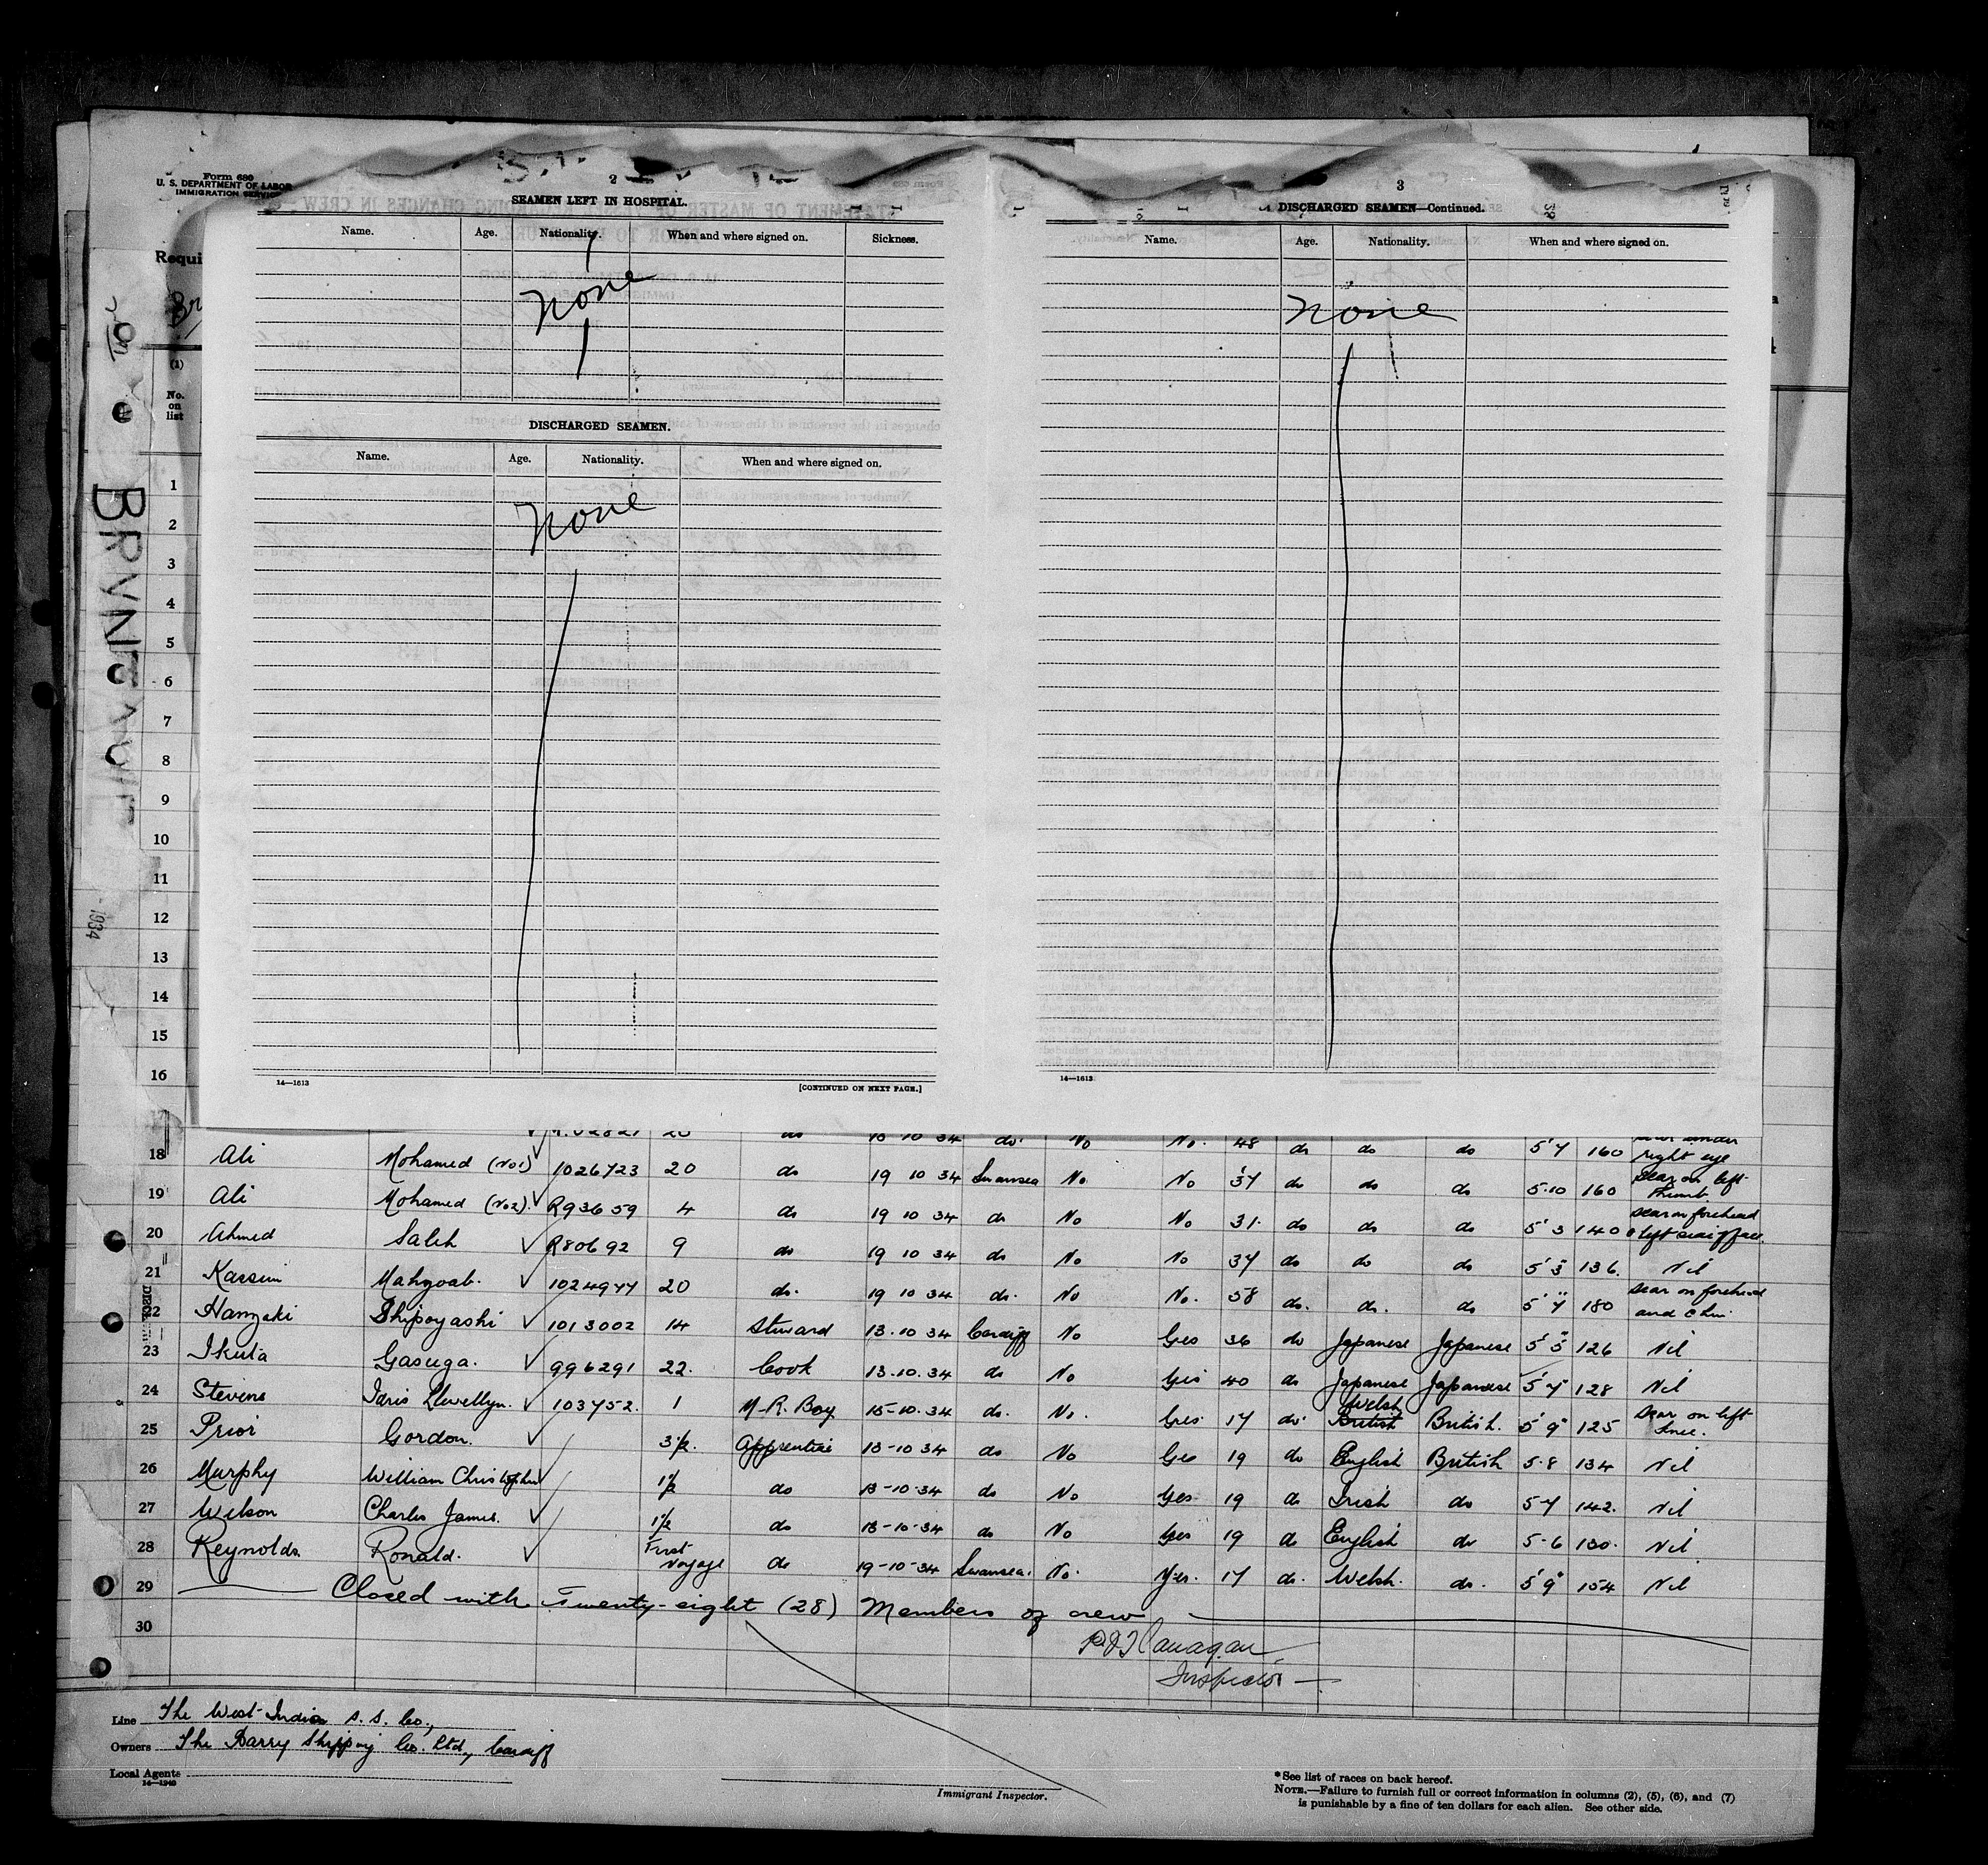 Form 680
U. S. DEPARTMENT OF LABOR
IMMIGRATION SERVICE
Requi
(1)
No.
on
list
1934
2
SEAMEN LEFT IN HOSPITAL.
Name. Age. Nationality. When and where signed on. Sickness.
None
DISCHARGED SEAMEN.
Name. Age. Nationality. When and where signed on.
None
14—1613
[CONTINUED ON NEXT PAGE.]
3
DISCHARGED SEAMEN—Continued.
Name. Age. Nationality. When and where signed on.
None
14—1613
1
2
3
4
5
6
7
8
9
10
11
12
13
14
15
16
17
20 do 13 10 34 do. No No. 48 do do do 5'7 160 scar under right eye
18 Ali Mohamed (No1) 1026723 20 do 19 10 34 Swansea No. No 37 do do do 5.10 160 Scar on left Thumb
19 Ali Mohamed (No2). R93659 4 do 19 10 34 do No No 31. do do do 5'3 140 scar on forehead & left side of face.
20 Ahmed Saleh R80692 9 do 19 10 34 do No No 37 do do do 5'3" 136. Nil
21 Kassim Mahgoab. 1024977 20 do. 19 10 34 do. No No. 38 do. do. do 5'7" 180 Scar on forehead and chin
22 Hamzaki Shipoyashi 1013002 14 Steward 13.10 34 Cardiff No Yes 36 do Japanese Japanese 5'5" 126 Nil
23 Ikuta Gasuga. 996291 22. Cook 13.10.34 do No Yes 40 do Japanese Japanese 5'7" 128 Nil
24 Stevens Idris Llewellyn. 103752. 1 M.R. Boy 15-10.34 do. No. Yes. 17 do. British Welsh British. 5'9" 125 Scar on left knee.
25 Prior Gordon. 3½. Apprentice 13-10 34 do No Yes 19 do English British 5.8 134 Nil
26 Murphy William Christopher 1½ do 13-10.34 do No Yes 19 do Irish do 5-7 142. Nil
27 Wilson Charles James. 1½ do 13-10-34 do No Yes 19 do English do 5-6 130. Nil
28 Reynolds. Ronald. First Voyage do 19-10-34 Swansea. No. Yes. 17 do. Welsh. do. 5'9" 154 Nil
29 Closed with Twenty-eight (28) Members of crew
30
P J Flanagan
Inspector
Line The West India S. S. Co.,
Owners The Barry Shipping Co. Ltd., Cardiff
Local Agents
14—1240
Immigrant Inspector.
*See list of races on back hereof.
NOTE.—Failure to furnish full or correct information in columns (2), (5), (6), and (7)
is punishable by a fine of ten dollars for each alien. See other side.